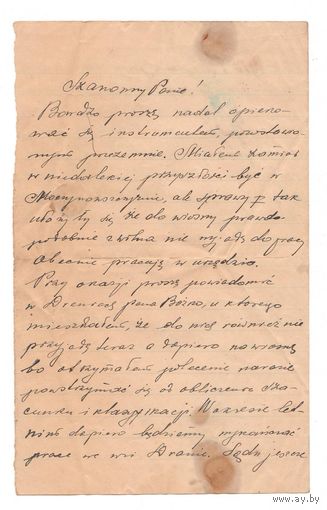 Szanowny Panie!
Bardzo proszę nadal opieko-
wać się instrumentem, pozostawio-
nym przezemnie. Miałem zamiar
w niedalekiej przyszłości być w
ale sprawy tak
ułożyły się że do wiosny prawdo-
podobnie z Wilna nie wyjadę do pracy
Obecnie pracuję w urzędzie.
Przy okazji proszę powiadomić
w pana u którego
mieszkałem, że do wsi również nie
przyjadę teraz a dopiero na wiosnę
bo otrzymałem polecenie narazie
powstrzymać się od obliczenia sza-
cunku i klasyfikacji. W okresie let-
nim dopiero będziemy wykonywać
prace we wsi Sądzę jeszcze
www.ay.by